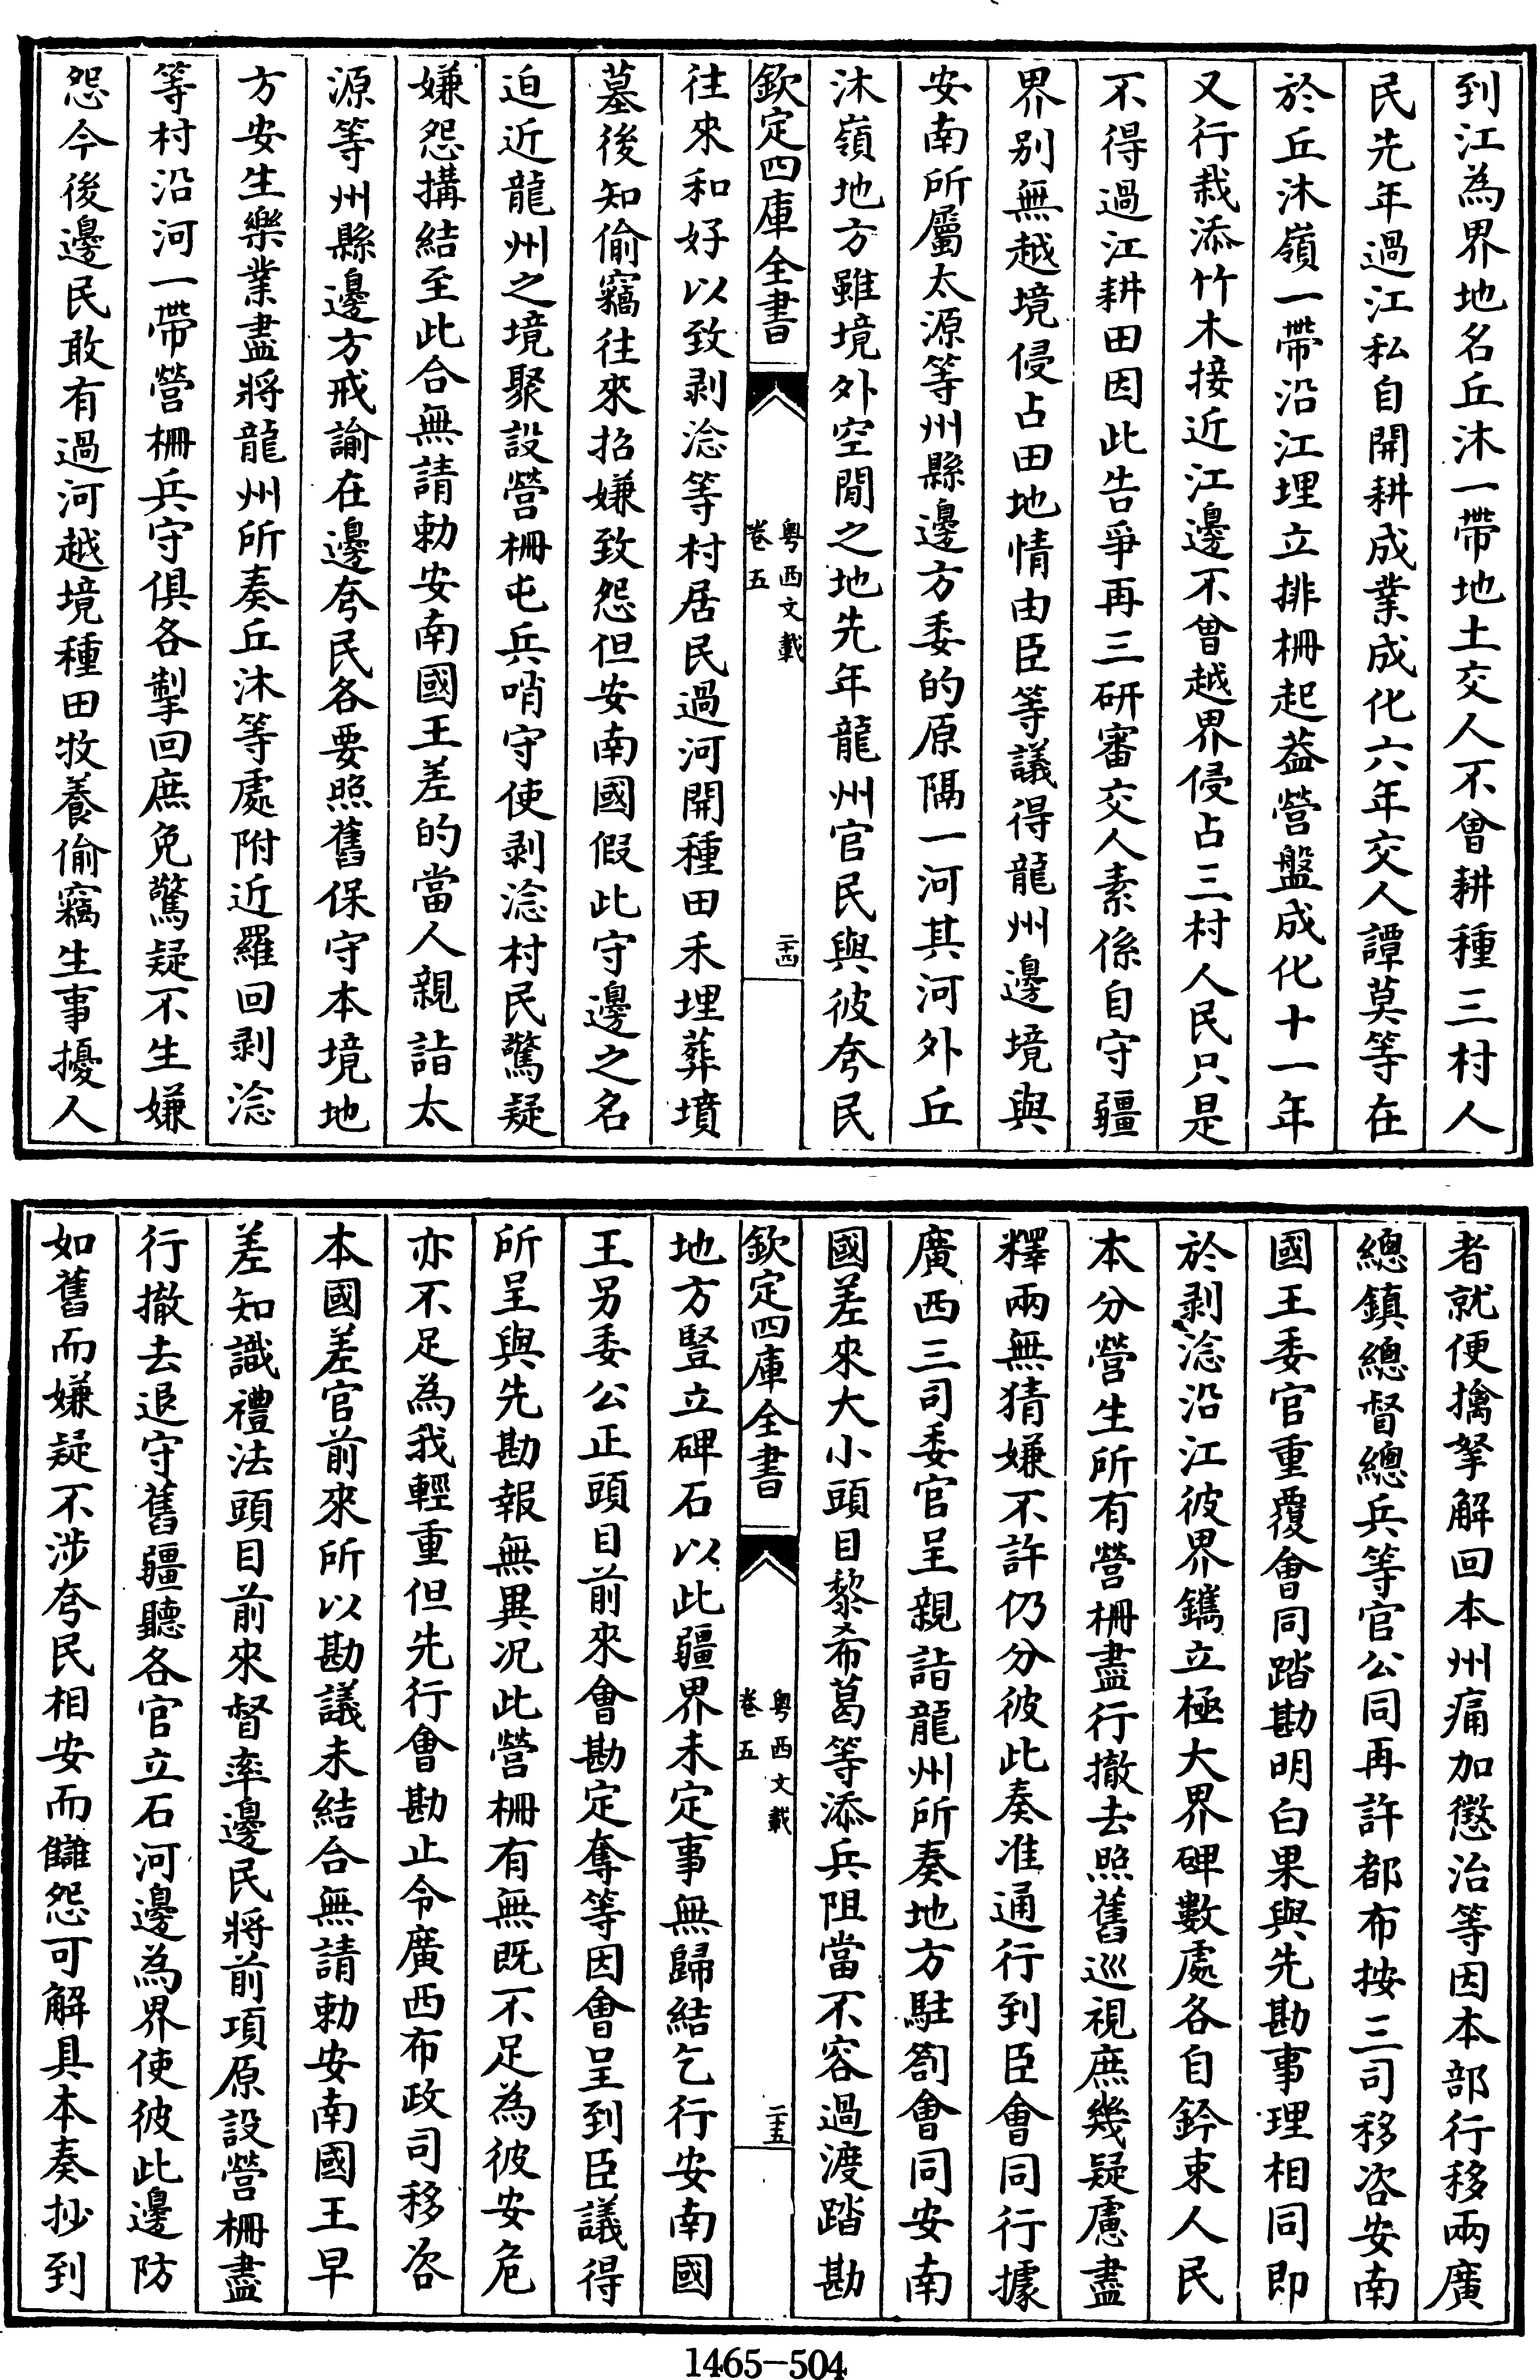 到江為界地名丘沐一帶地土交人不曾耕種三村人
民先年過江私自開耕成業成化六年交人譚莫等在
於丘沐嶺一帶沿江埋立排柵起葢營盤成化十一年
又行栽添竹木接近江邊不曾越界侵占三村人民只是
不得過江耕田因此告爭再三研審交人素係自守疆
界别無越境侵占田地情由臣等議得龍州邊境與
安南所屬太源等州縣邊方委的原隔一河其河外丘
沐嶺地方雖境外空閒之地先年龍州官民與彼夸民
欽定四庫全書
粤西文載
卷五
二十四
往來和好以致剥淰等村居民過河開種田禾埋葬墳
墓後知偷竊往來招嫌致怨但安南國假此守邊之名
迫近龍州之境聚設營柵屯兵哨守使剥淰村民驚疑
嫌怨搆結至此合無請勅安南國王差的當人親詣太
源等州縣邊方戒諭在邊夸民各要照舊保守本境地
方安生樂業盡將龍州所奏丘沐等處附近羅回剥淰
等村沿河一帶營柵兵守俱各掣回庶免驚疑不生嫌
怨今後邊民敢有過河越境種田牧養偷竊生事擾人
者就便擒拏解回本州痛加懲治等因本部行移兩廣
總鎮總督總兵等官公同再許都布按三司移咨安南
國王委官重覆會同踏勘明白果與先勘事理相同即
於剥淰沿江彼界鐫立極大界碑數處各自鈐束人民
本分營生所有營柵盡行撤去照舊巡視庶幾疑慮盡
釋兩無猜嫌不許仍分彼此奏准通行到臣會同行據
廣西三司委官呈親詣龍州所奏地方駐劄會同安南
國差來大小頭目黎希葛等添兵阻當不容過渡踏勘
欽定四庫全書
粤西文載
卷五
二十五
地方豎立碑石以此疆界未定事無歸結乞行安南國
王另委公正頭目前來會勘定奪等因會呈到臣議得
所呈與先勘報無異况此營柵有無既不足為彼安危
亦不足為我輕重但先行會勘止令廣西布政司移咨
本國差官前來所以勘議未結合無請勅安南國王早
差知識禮法頭目前來督率邊民將前項原設營柵盡
行撤去退守舊疆聽各官立石河邊為界使彼此邊防
如舊而嫌疑不涉夸民相安而讎怨可解具本奏抄到
1465-504